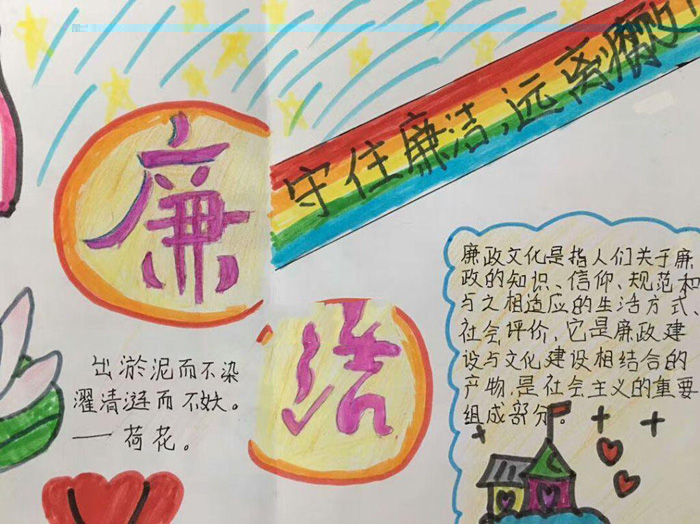 守住廉洁,远离腐败
廉
洁
出淤泥而不染
濯清涟而不妖。
——荷花。
廉政文化是指人们关于廉
政的知识、信仰、规范和
与之相适应的生活方式、
社会评价,它是廉政建
设与文化建设相结合的
产物,是社会主义的重要
组成部分。